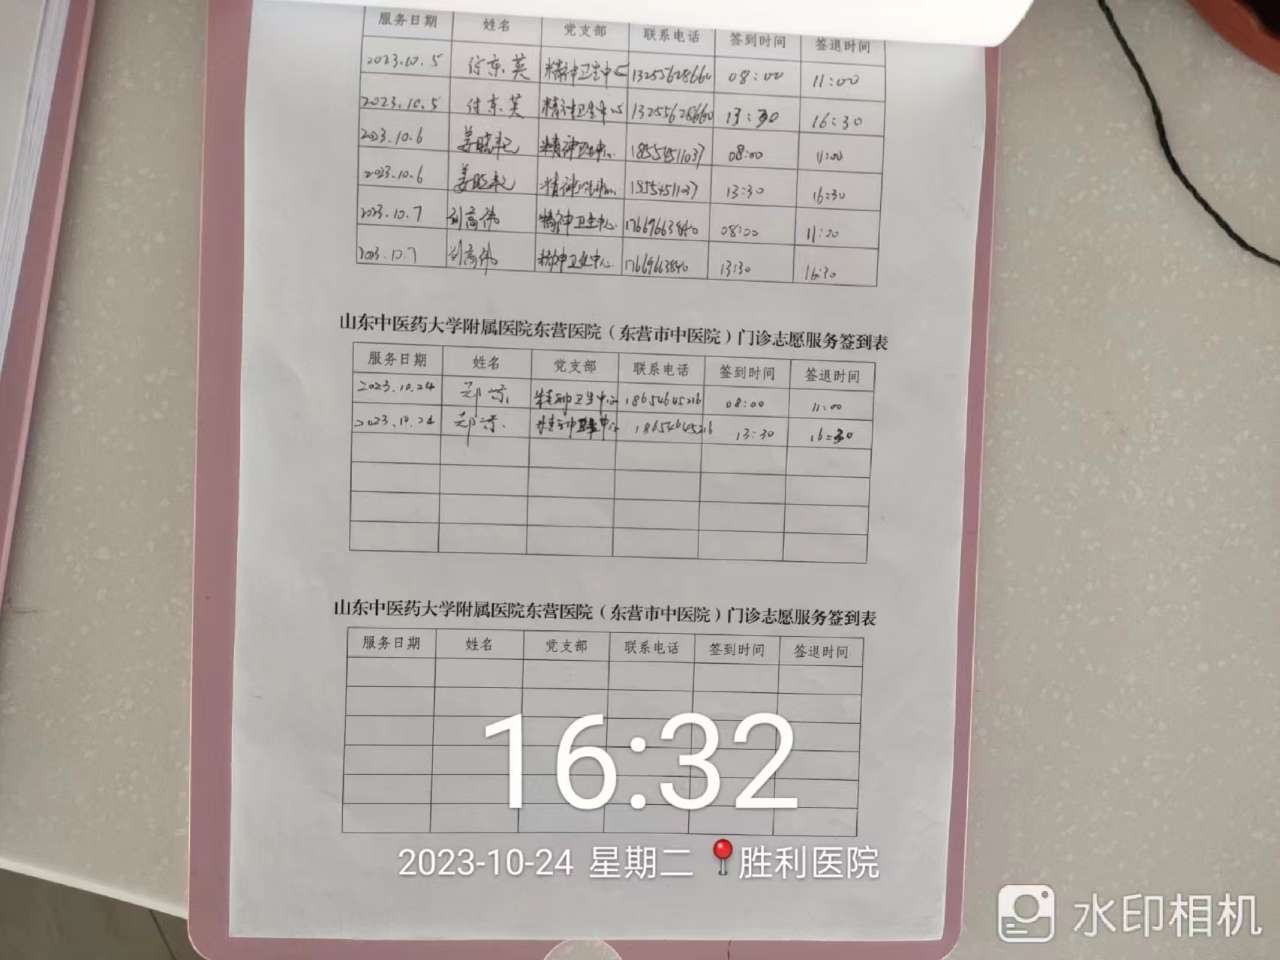 服务日期 姓名 党支部 联系电话 签到时间 签退时间
2023.10.5 徐东英 精神卫生中心 13255628660 08:00 11:00
2023.10.5 徐东英 精神卫生中心 13255628660 13:30 16:30
2023.10.6 姜晓 精神卫生中心 18554511037 08:00 11:00
2023.10.6 姜晓 精神卫生中心 18554511037 13:30 16:30
2023.10.7 刘高伟 精神卫生中心 17669663840 08:00 11:00
2023.10.7 刘高伟 精神卫生中心 17669663840 13:30 16:30
山东中医药大学附属医院东营医院（东营市中医院）门诊志愿服务签到表
服务日期 姓名 党支部 联系电话 签到时间 签退时间
2023.10.24 郑 精神卫生中心 18654645216 08:00 11:00
2023.10.24 郑 精神卫生中心 18654645216 13:30 16:30
山东中医药大学附属医院东营医院（东营市中医院）门诊志愿服务签到表
服务日期 姓名 党支部 联系电话 签到时间 签退时间
16:32
2023-10-24 星期二 胜利医院
水印相机